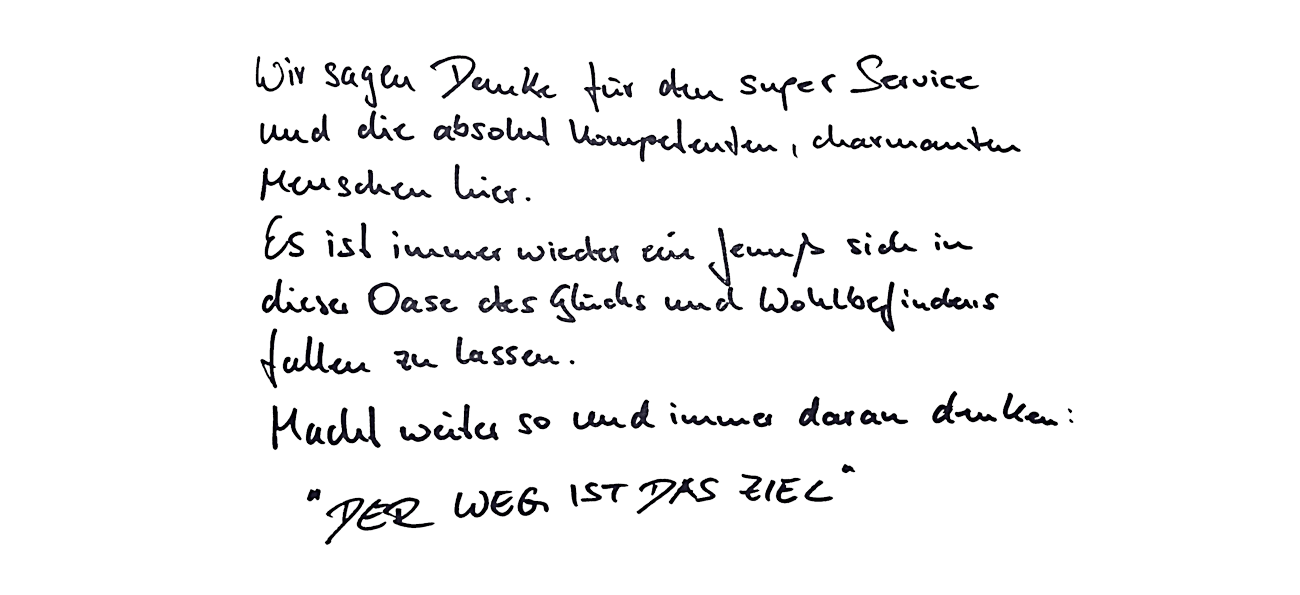 Wir sagen Danke für den super Service
und die absolut kompetenten, charmanten
Menschen hier.
Es ist immer wieder ein Genuß sich in
dieser Oase des Glücks und Wohlbefindens
fallen zu lassen.
Macht weiter so und immer daran denken:
"DER WEG IST DAS ZIEL"